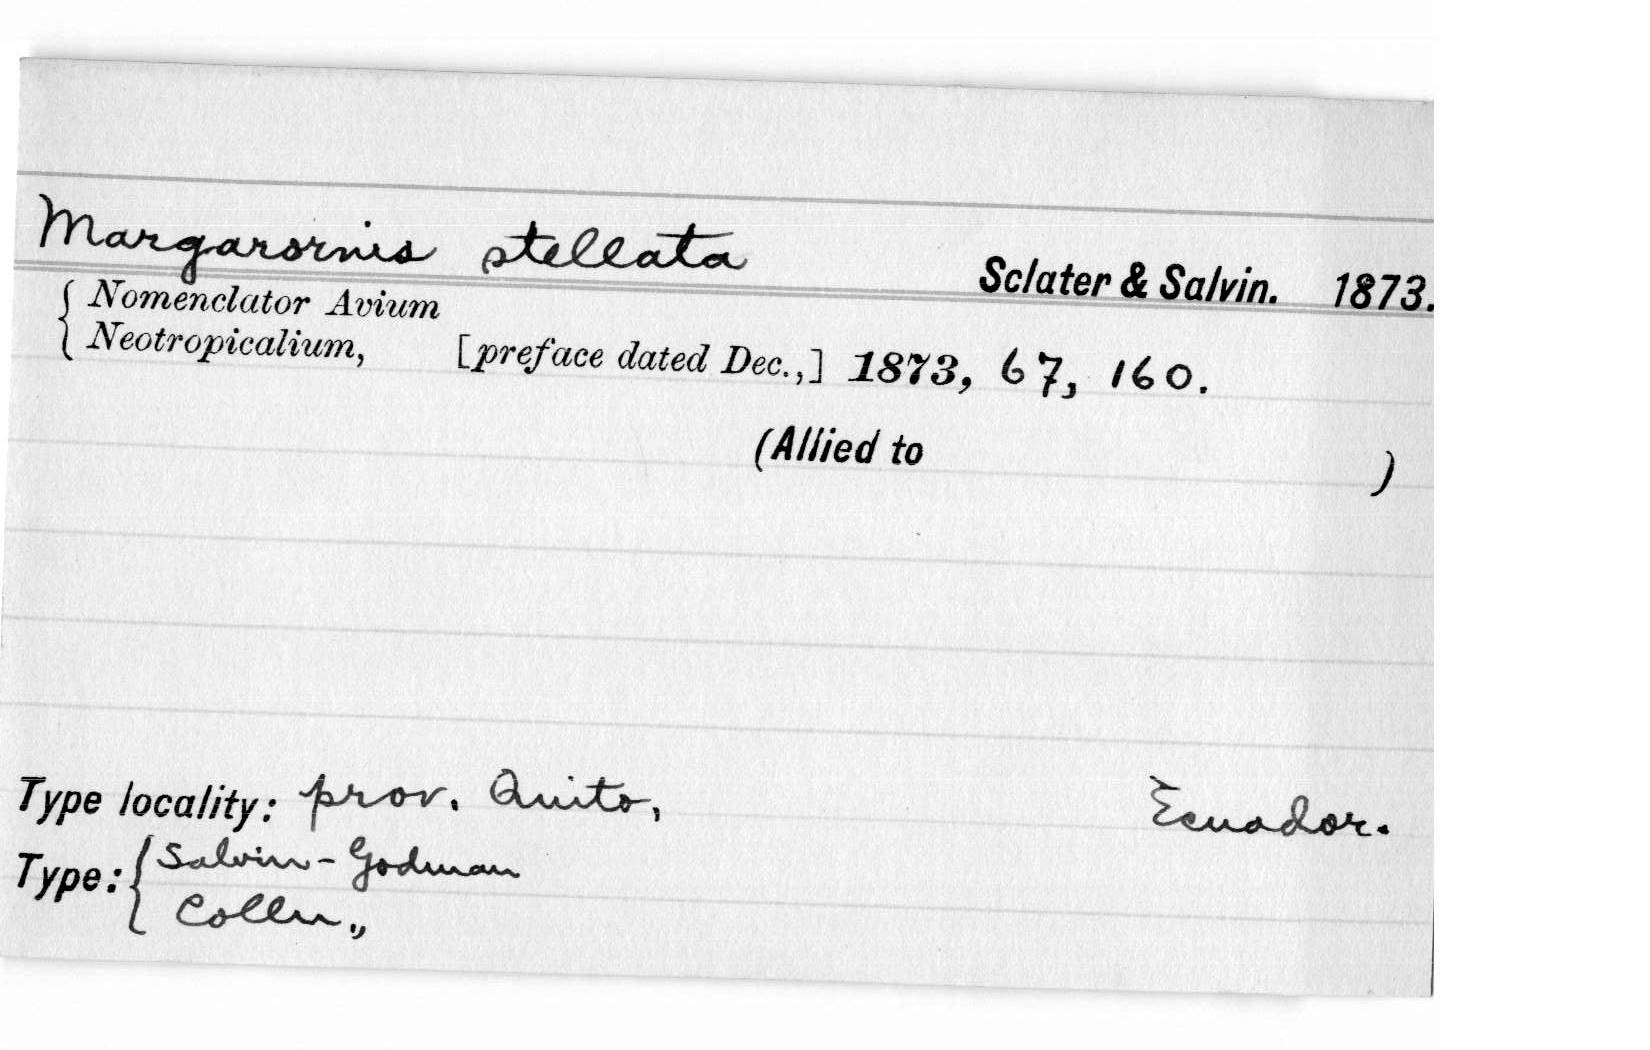 Margarornis stellata Sclater & Salvin. 1873.
{ Nomenclator Avium
Neotropicalium, [preface dated Dec.,] 1873, 67, 160.
(Allied to )
Type locality: prov. Quito, Ecuador.
Type: { Salvin-Godman
Colln.,